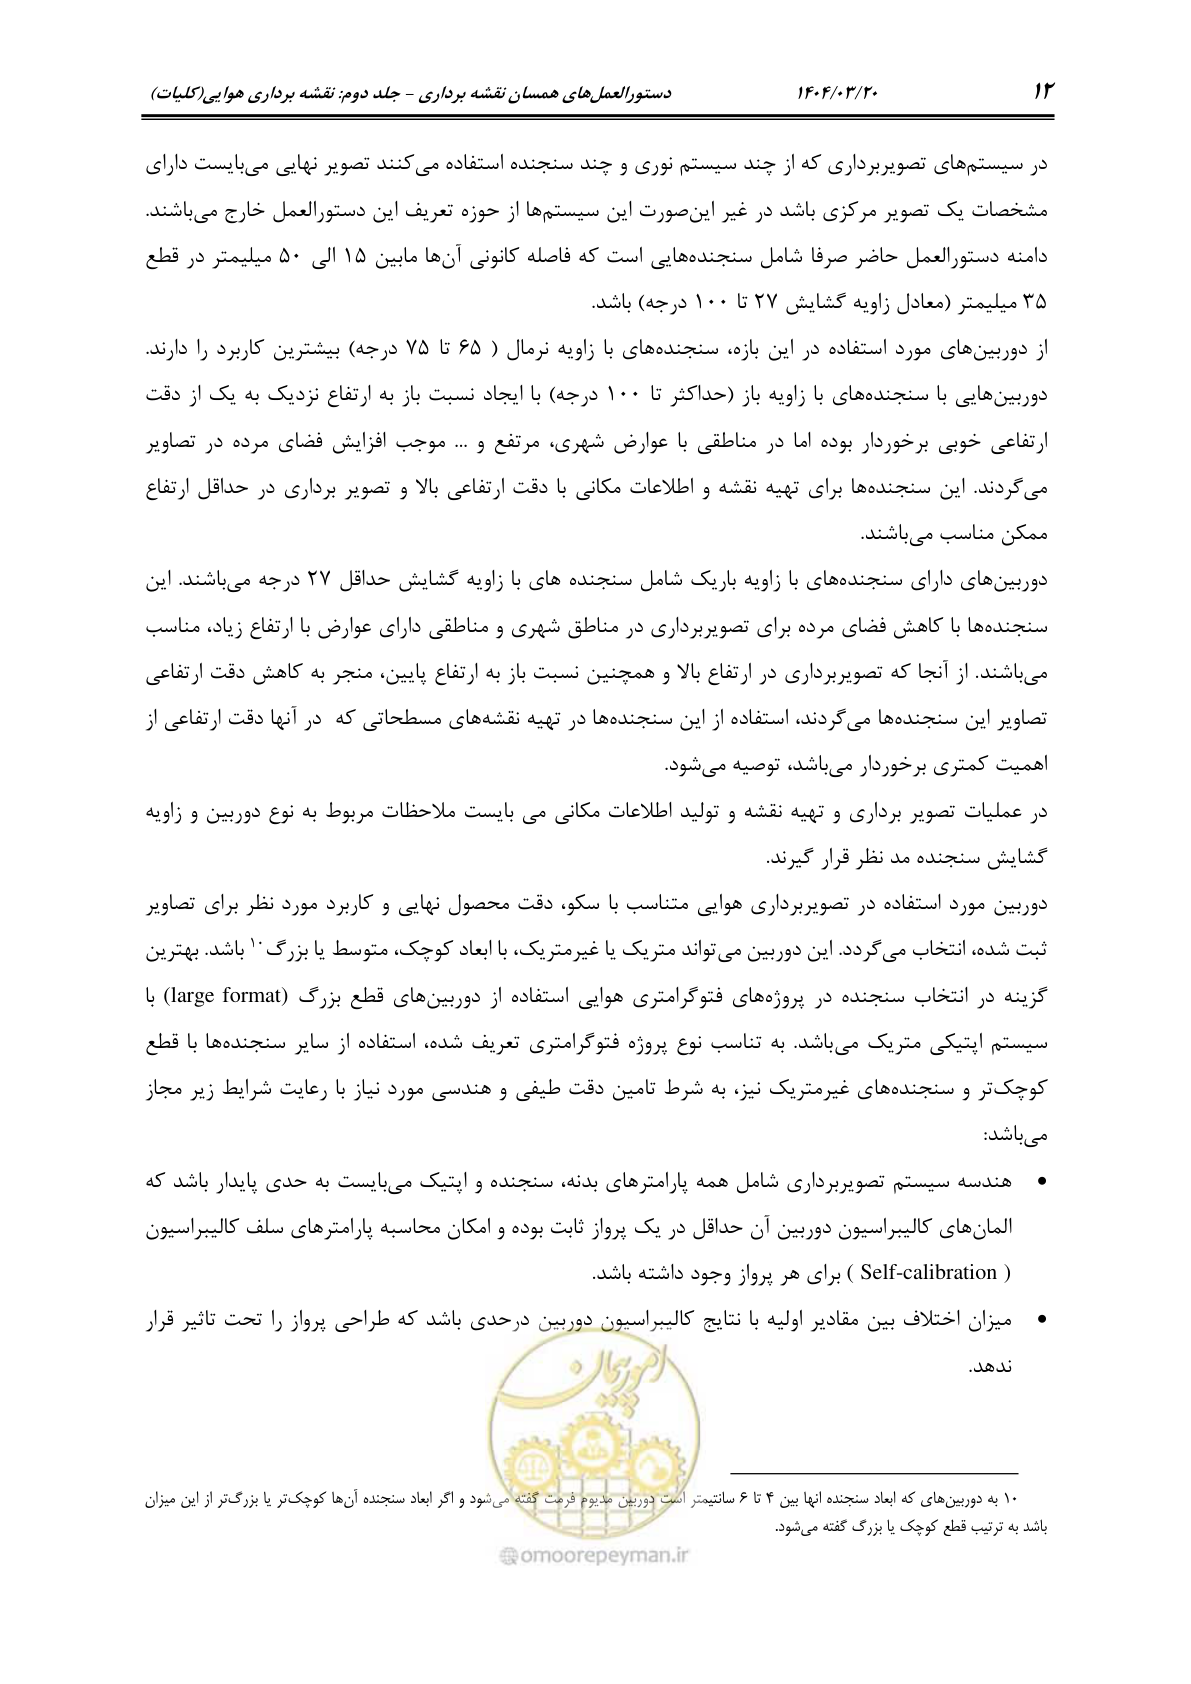 ۱۲ ۱۴۰۴/۰۳/۲۰ دستورالعمل‌های همسان نقشه برداری – جلد دوم: نقشه برداری هوایی(کلیات)
در سیستم‌های تصویربرداری که از چند سیستم نوری و چند سنجنده استفاده می‌کنند تصویر نهایی می‌بایست دارای
مشخصات یک تصویر مرکزی باشد در غیر این‌صورت این سیستم‌ها از حوزه تعریف این دستورالعمل خارج می‌باشند.
دامنه دستورالعمل حاضر صرفا شامل سنجنده‌هایی است که فاصله کانونی آن‌ها مابین ۱۵ الی ۵۰ میلیمتر در قطع
۳۵ میلیمتر (معادل زاویه گشایش ۲۷ تا ۱۰۰ درجه) باشد.
از دوربین‌های مورد استفاده در این بازه، سنجنده‌های با زاویه نرمال ( ۶۵ تا ۷۵ درجه) بیشترین کاربرد را دارند.
دوربین‌هایی با سنجنده‌های با زاویه باز (حداکثر تا ۱۰۰ درجه) با ایجاد نسبت باز به ارتفاع نزدیک به یک از دقت
ارتفاعی خوبی برخوردار بوده اما در مناطقی با عوارض شهری، مرتفع و ... موجب افزایش فضای مرده در تصاویر
می‌گردند. این سنجنده‌ها برای تهیه نقشه و اطلاعات مکانی با دقت ارتفاعی بالا و تصویر برداری در حداقل ارتفاع
ممکن مناسب می‌باشند.
دوربین‌های دارای سنجنده‌های با زاویه باریک شامل سنجنده های با زاویه گشایش حداقل ۲۷ درجه می‌باشند. این
سنجنده‌ها با کاهش فضای مرده برای تصویربرداری در مناطق شهری و مناطقی دارای عوارض با ارتفاع زیاد، مناسب
می‌باشند. از آنجا که تصویربرداری در ارتفاع بالا و همچنین نسبت باز به ارتفاع پایین، منجر به کاهش دقت ارتفاعی
تصاویر این سنجنده‌ها می‌گردند، استفاده از این سنجنده‌ها در تهیه نقشه‌های مسطحاتی که در آنها دقت ارتفاعی از
اهمیت کمتری برخوردار می‌باشد، توصیه می‌شود.
در عملیات تصویر برداری و تهیه نقشه و تولید اطلاعات مکانی می بایست ملاحظات مربوط به نوع دوربین و زاویه
گشایش سنجنده مد نظر قرار گیرند.
دوربین مورد استفاده در تصویربرداری هوایی متناسب با سکو، دقت محصول نهایی و کاربرد مورد نظر برای تصاویر
ثبت شده، انتخاب می‌گردد. این دوربین می‌تواند متریک یا غیرمتریک، با ابعاد کوچک، متوسط یا بزرگ۱۰ باشد. بهترین
گزینه در انتخاب سنجنده در پروژه‌های فتوگرامتری هوایی استفاده از دوربین‌های قطع بزرگ (large format) با
سیستم اپتیکی متریک می‌باشد. به تناسب نوع پروژه فتوگرامتری تعریف شده، استفاده از سایر سنجنده‌ها با قطع
کوچک‌تر و سنجنده‌های غیرمتریک نیز، به شرط تامین دقت طیفی و هندسی مورد نیاز با رعایت شرایط زیر مجاز
می‌باشد:
• هندسه سیستم تصویربرداری شامل همه پارامترهای بدنه، سنجنده و اپتیک می‌بایست به حدی پایدار باشد که
المان‌های کالیبراسیون دوربین آن حداقل در یک پرواز ثابت بوده و امکان محاسبه پارامترهای سلف کالیبراسیون
( Self-calibration ) برای هر پرواز وجود داشته باشد.
• میزان اختلاف بین مقادیر اولیه با نتایج کالیبراسیون دوربین درحدی باشد که طراحی پرواز را تحت تاثیر قرار
ندهد.
امور پیمان
۱۰ به دوربین‌های که ابعاد سنجنده انها بین ۴ تا ۶ سانتیمتر است دوربین مدیوم فرمت گفته می‌شود و اگر ابعاد سنجنده آن‌ها کوچک‌تر یا بزرگ‌تر از این میزان
باشد به ترتیب قطع کوچک یا بزرگ گفته می‌شود.
@omoorepeyman.ir